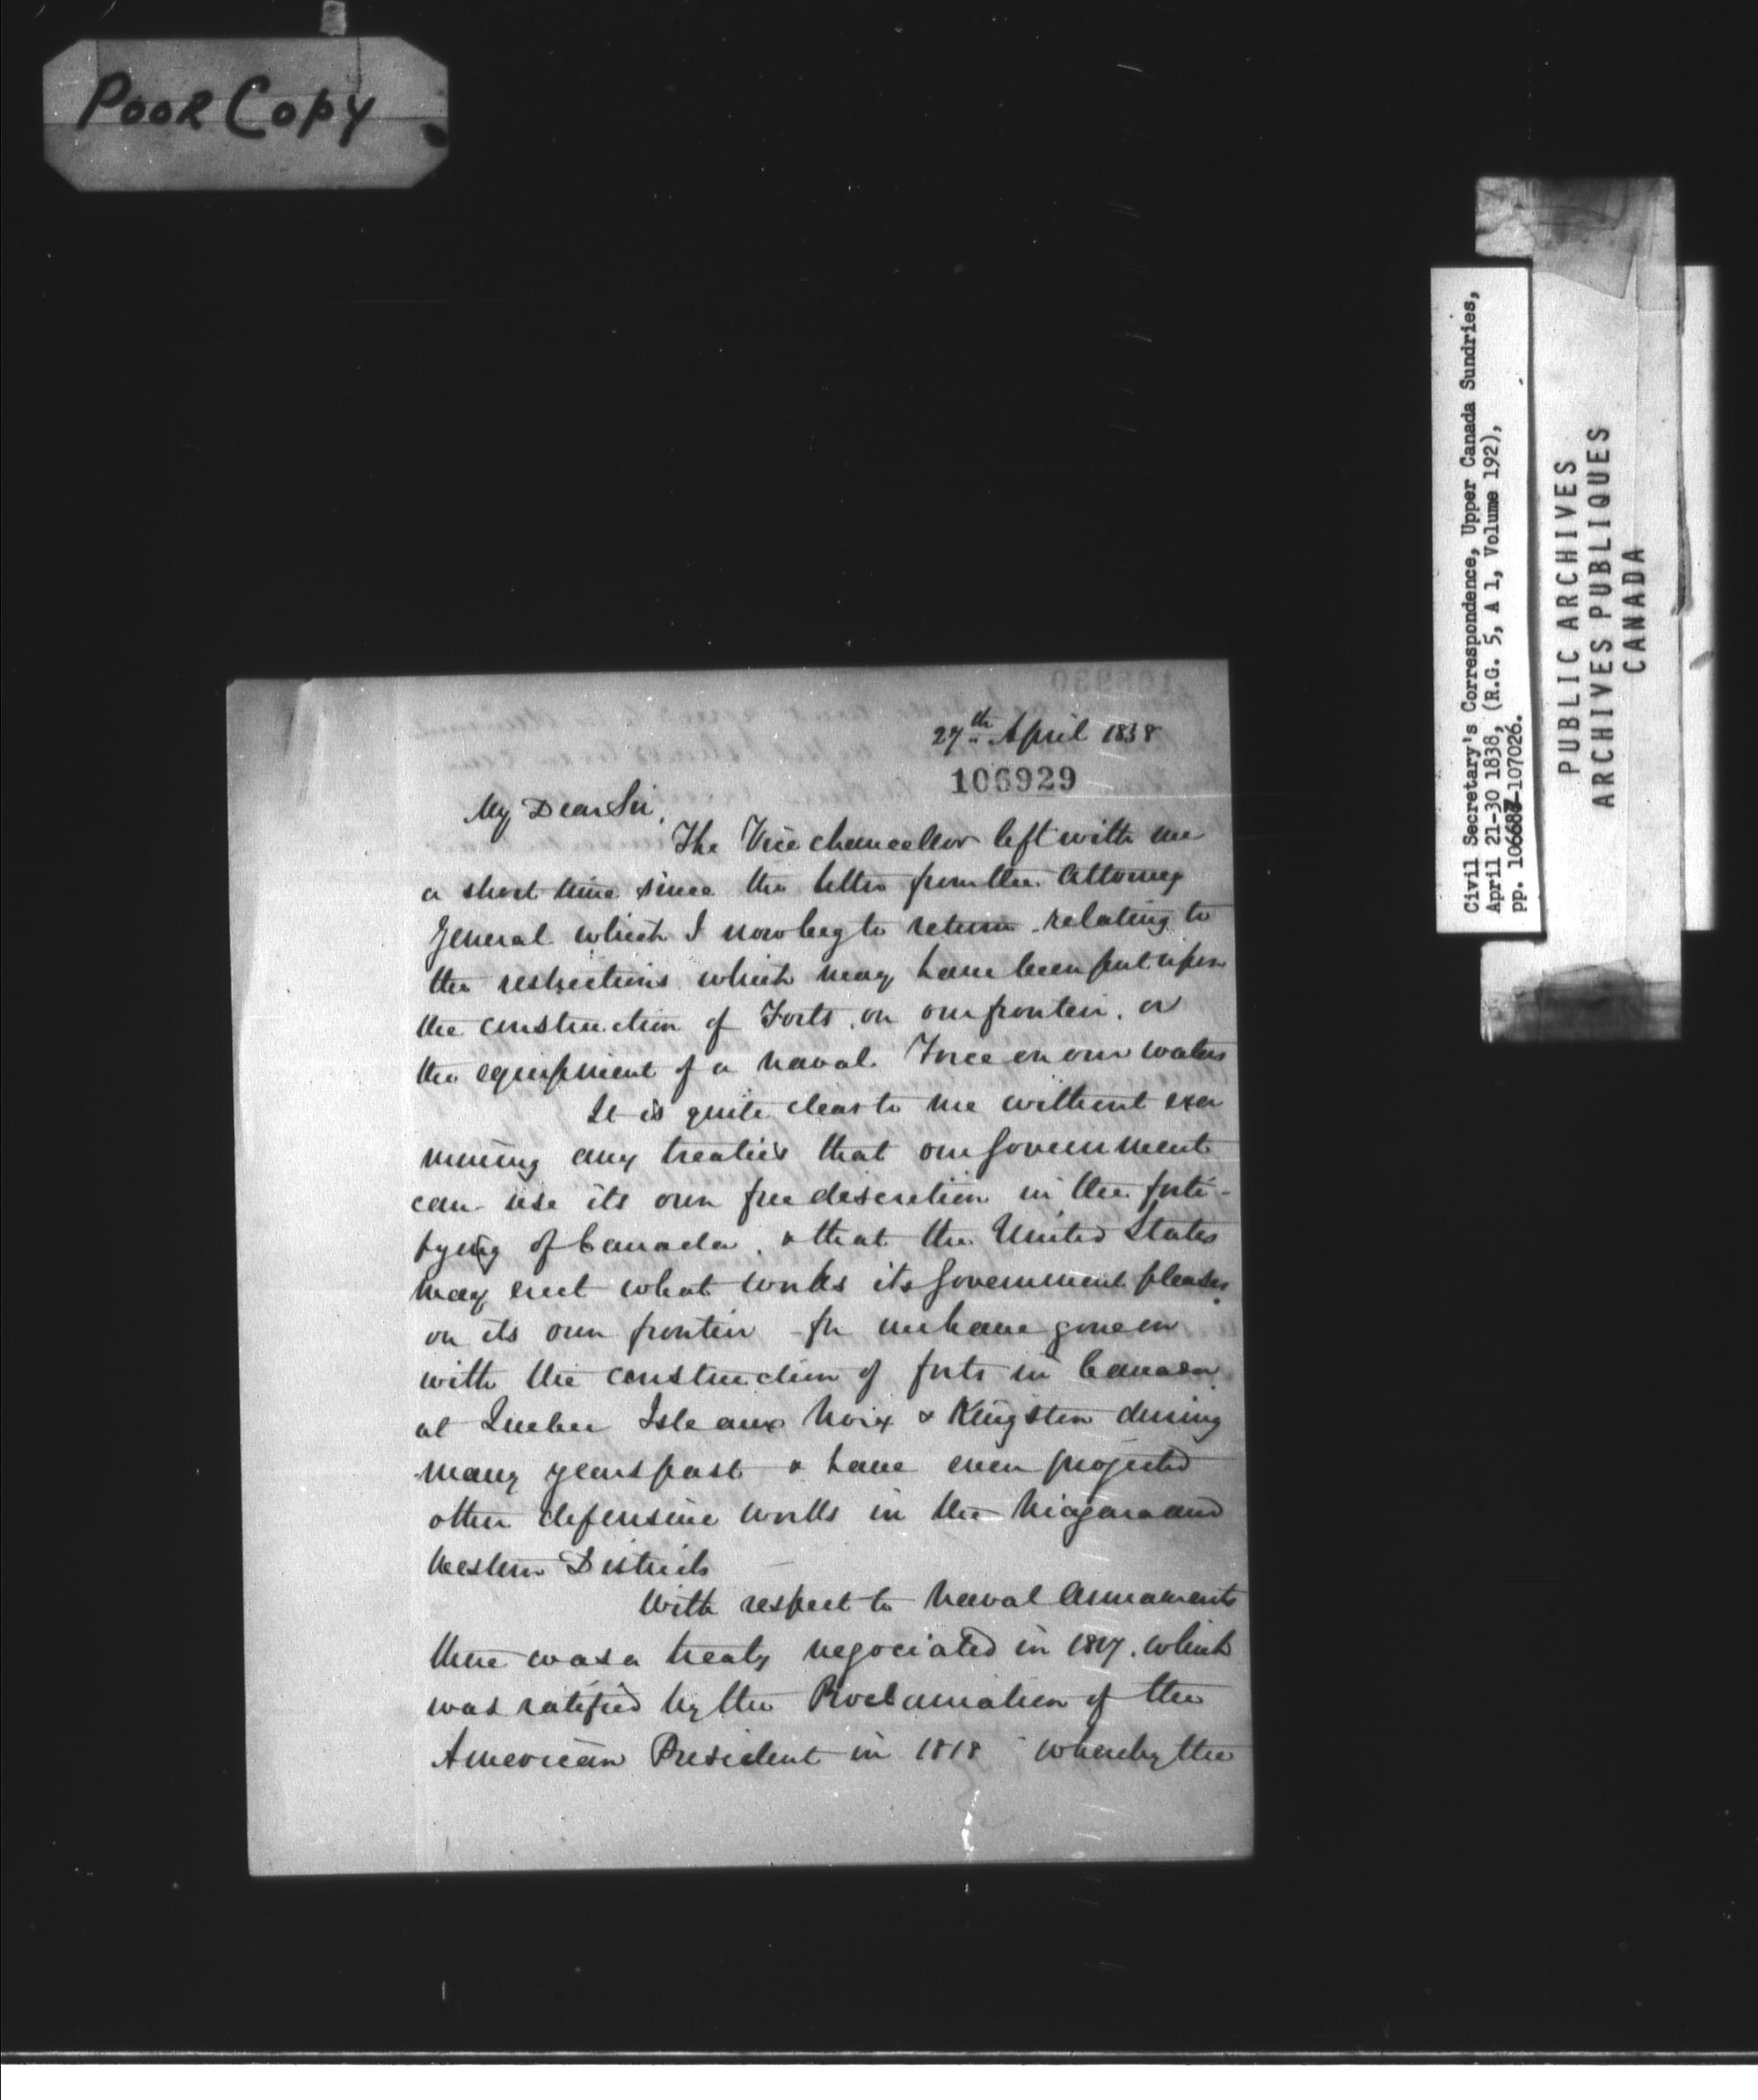 Poor Copy
Civil Secretary's Correspondence, Upper Canada Sundries,
April 21-30 1838, (R.G. 5, A 1, Volume 192),
pp. 106687-107026.
PUBLIC ARCHIVES
ARCHIVES PUBLIQUES
CANADA
27th April 1838
106929
My Dear Sir,
The Vice chancellor left with me
a short time since the letter from the Attorney
General which I now beg to return relating to
the restrictions which may have been put upon
the construction of Forts on our frontier, or
the equipment of a naval Force on our waters
It is quite clear to me without exa
mining any treaties that our Government
can use its own free discretion in the forti-
fying of Canada, & that the United States
may erect what works its Government pleases
on its own frontier - for we have gone on
with the construction of forts in Canada
at Quebec Isle aux Noix & Kingston during
many years past & have even projected
other defensive works in the Niagara and
Western Districts
With respect to Naval Armaments
there was a treaty negociated in 1817. which
was ratified by the Proclamation of the
American President in 1818 whereby the